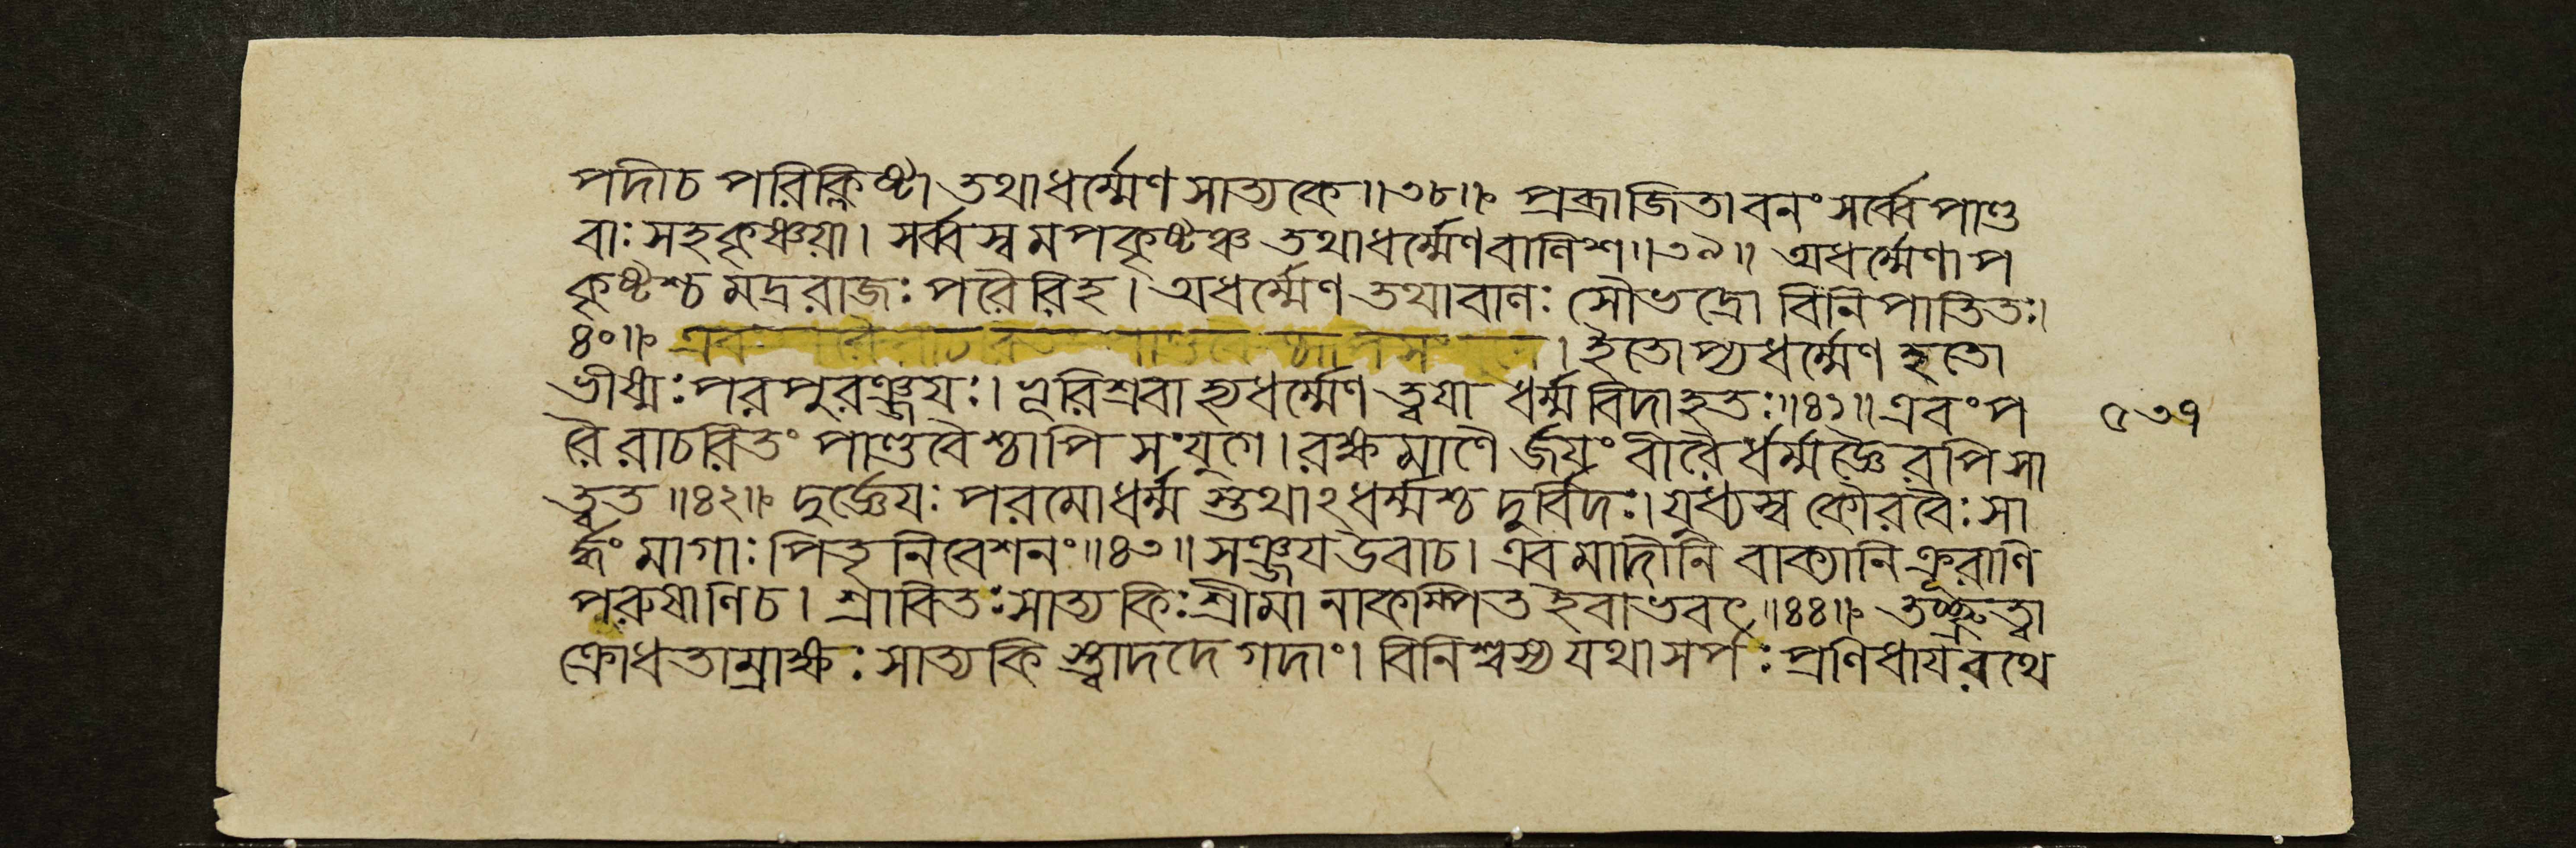 পদীচ পরিক্লিষ্টা তথাধর্ম্মেণ সাত্যকে॥৩৮॥ প্রব্রাজিতা বনং সর্ব্বে পাণ্ড
বাঃ সহকৃষ্ণয়া। সর্ব্বস্বমপকৃষ্টঞ্চ তথাধর্ম্মেণ বালিশ॥৩৯॥ অধর্ম্মেণাপ
কৃষ্টশ্চ মদ্ররাজঃ পরৈরিহ। অধর্ম্মেণ তথা বালঃ সৌভদ্রো বিনিপাতিতঃ।
৪০॥ এবং পরৈরাচরিতং পাণ্ডবৈশ্চাপি সংযুগে। ইতোপ্যধর্ম্মেণ হতো
ভীষ্মঃ পরপুরঞ্জয়ঃ। ভূরিশ্রবা হ্যধর্ম্মেণ ত্বয়া ধর্ম্মবিদাহতঃ॥৪১॥ এবং প
রৈরাচরিতং পাণ্ডবৈশ্চাপি সংযুগে। রক্ষমাণৈর্জয়ং বীরৈর্ধর্ম্মজ্ঞৈরপি সা
ত্বত॥৪২॥ দুর্জ্ঞেয়ঃ পরমো ধর্ম্মস্তথাঽধর্ম্মশ্চ দুর্বিদঃ। যুধ্যস্ব কৌরবৈঃ সা
র্দ্ধং মাগাঃ পিতৃনিবেশনং॥৪৩॥ সঞ্জয় উবাচ। এবমাদীনি বাক্যানি ক্রূরাণি
পরুষাণিচ। শ্রাবিতঃ সাত্যকিঃ শ্রীমানাকম্পিত ইবাভবৎ॥৪৪॥ তচ্ছ্রুত্বা
ক্রোধতাম্রাক্ষঃ সাত্যকিস্ত্বাদদে গদাং। বিনিশ্বস্য যথা সর্পঃ প্রণিধায় রথে
৫৩৭